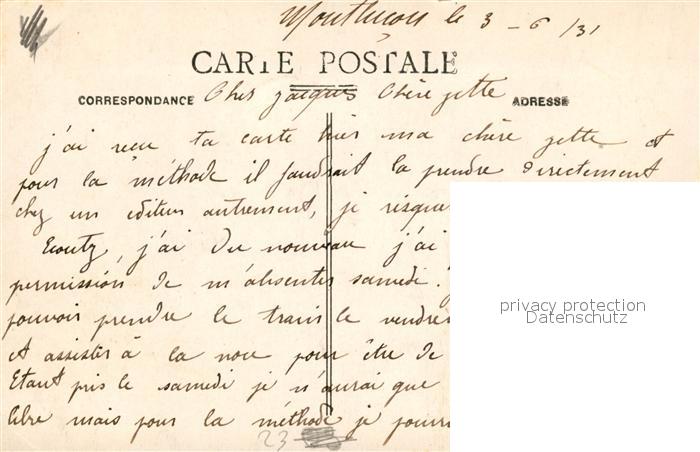 Montluçon le 3 - 6 /31
CARTE POSTALE
CORRESPONDANCE
Cher Jacques Chère Zette
ADRESSE
j'ai reçu ta carte hier ma chère Zette et
pour la méthode il faudrait la prendre directement
chez un editeur autrement, je risque
Ecoutez, j'ai du nouveau j'ai
permission de m'absenter samedi.
pouvoir prendre le train le vendre
et assister à la noce pour être de
Etant pris le samedi je n'aurai que
libre mais pour la méthode je pourr
23
privacy protection
Datenschutz